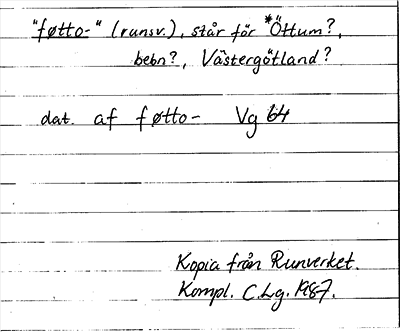 "føtto-" (runsv.), står för *Öttum?,
bebn?, Västergötland?
dat. af føtto- Vg 64
Kopia från Runverket.
Kompl. C.Lg. 1987.